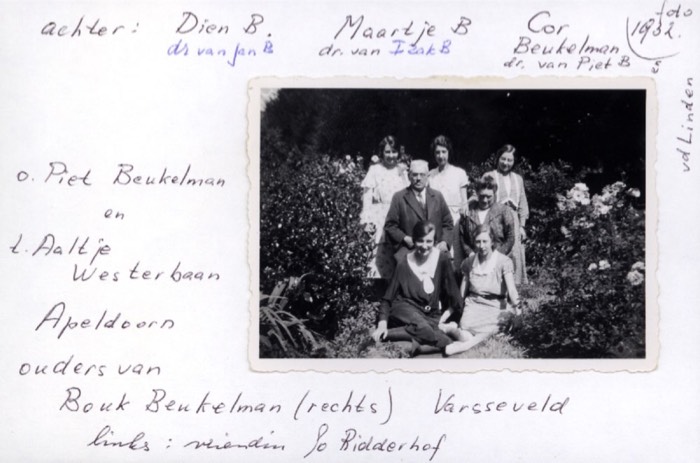 achter: Dien B. Maartje B Cor foto
ds van Jan B dr. van Izak B Beukelman 1932.
dr. van Piet B
vd Linden
o. Piet Beukelman
en
t. Aaltje
Westerbaan
Apeldoorn
ouders van
Bouk Beukelman (rechts) Varsseveld
links: vriendin Jo Ridderhof